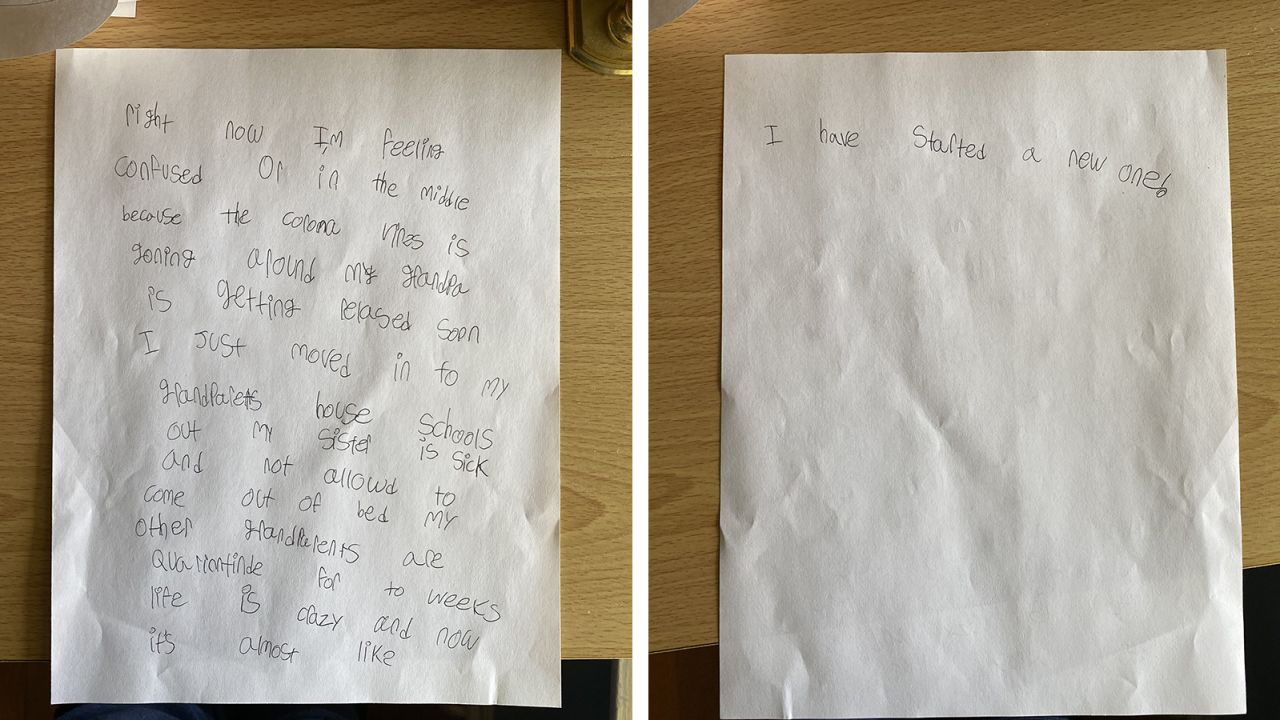 right now I'm feeling
confused or in the middle
because the corona virus is
goning around my grandpa
is getting relased soon
I just moved in to my
grandparets house schools
out my sister is sick
and not allowd to
come out of bed my
other grandparents are
Quariontinde for to weeks
life is crazy and now
it's almost like
I have started a new one!